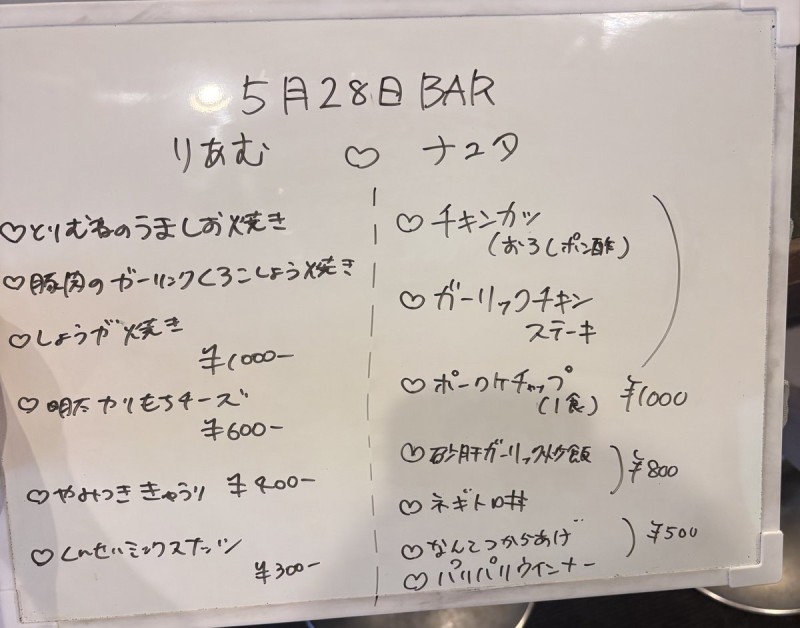 5月28日 BAR
りあむ ♡ ナユタ
♡とりむねのうましお焼き
♡豚肉のガーリックくろこしょう焼き
♡しょうが焼き
¥1000-
♡明太かりもちチーズ
¥600-
♡やみつききゅうり ¥400-
♡くんせいミックスナッツ
¥300-
♡チキンカツ
(おろしポン酢)
♡ガーリックチキン
ステーキ
♡ポークケチャップ
(1食) ¥1000
♡砂肝ガーリック炒飯
¥800
♡ネギトロ丼
♡なんこつからあげ
¥500
♡パリパリウインナー